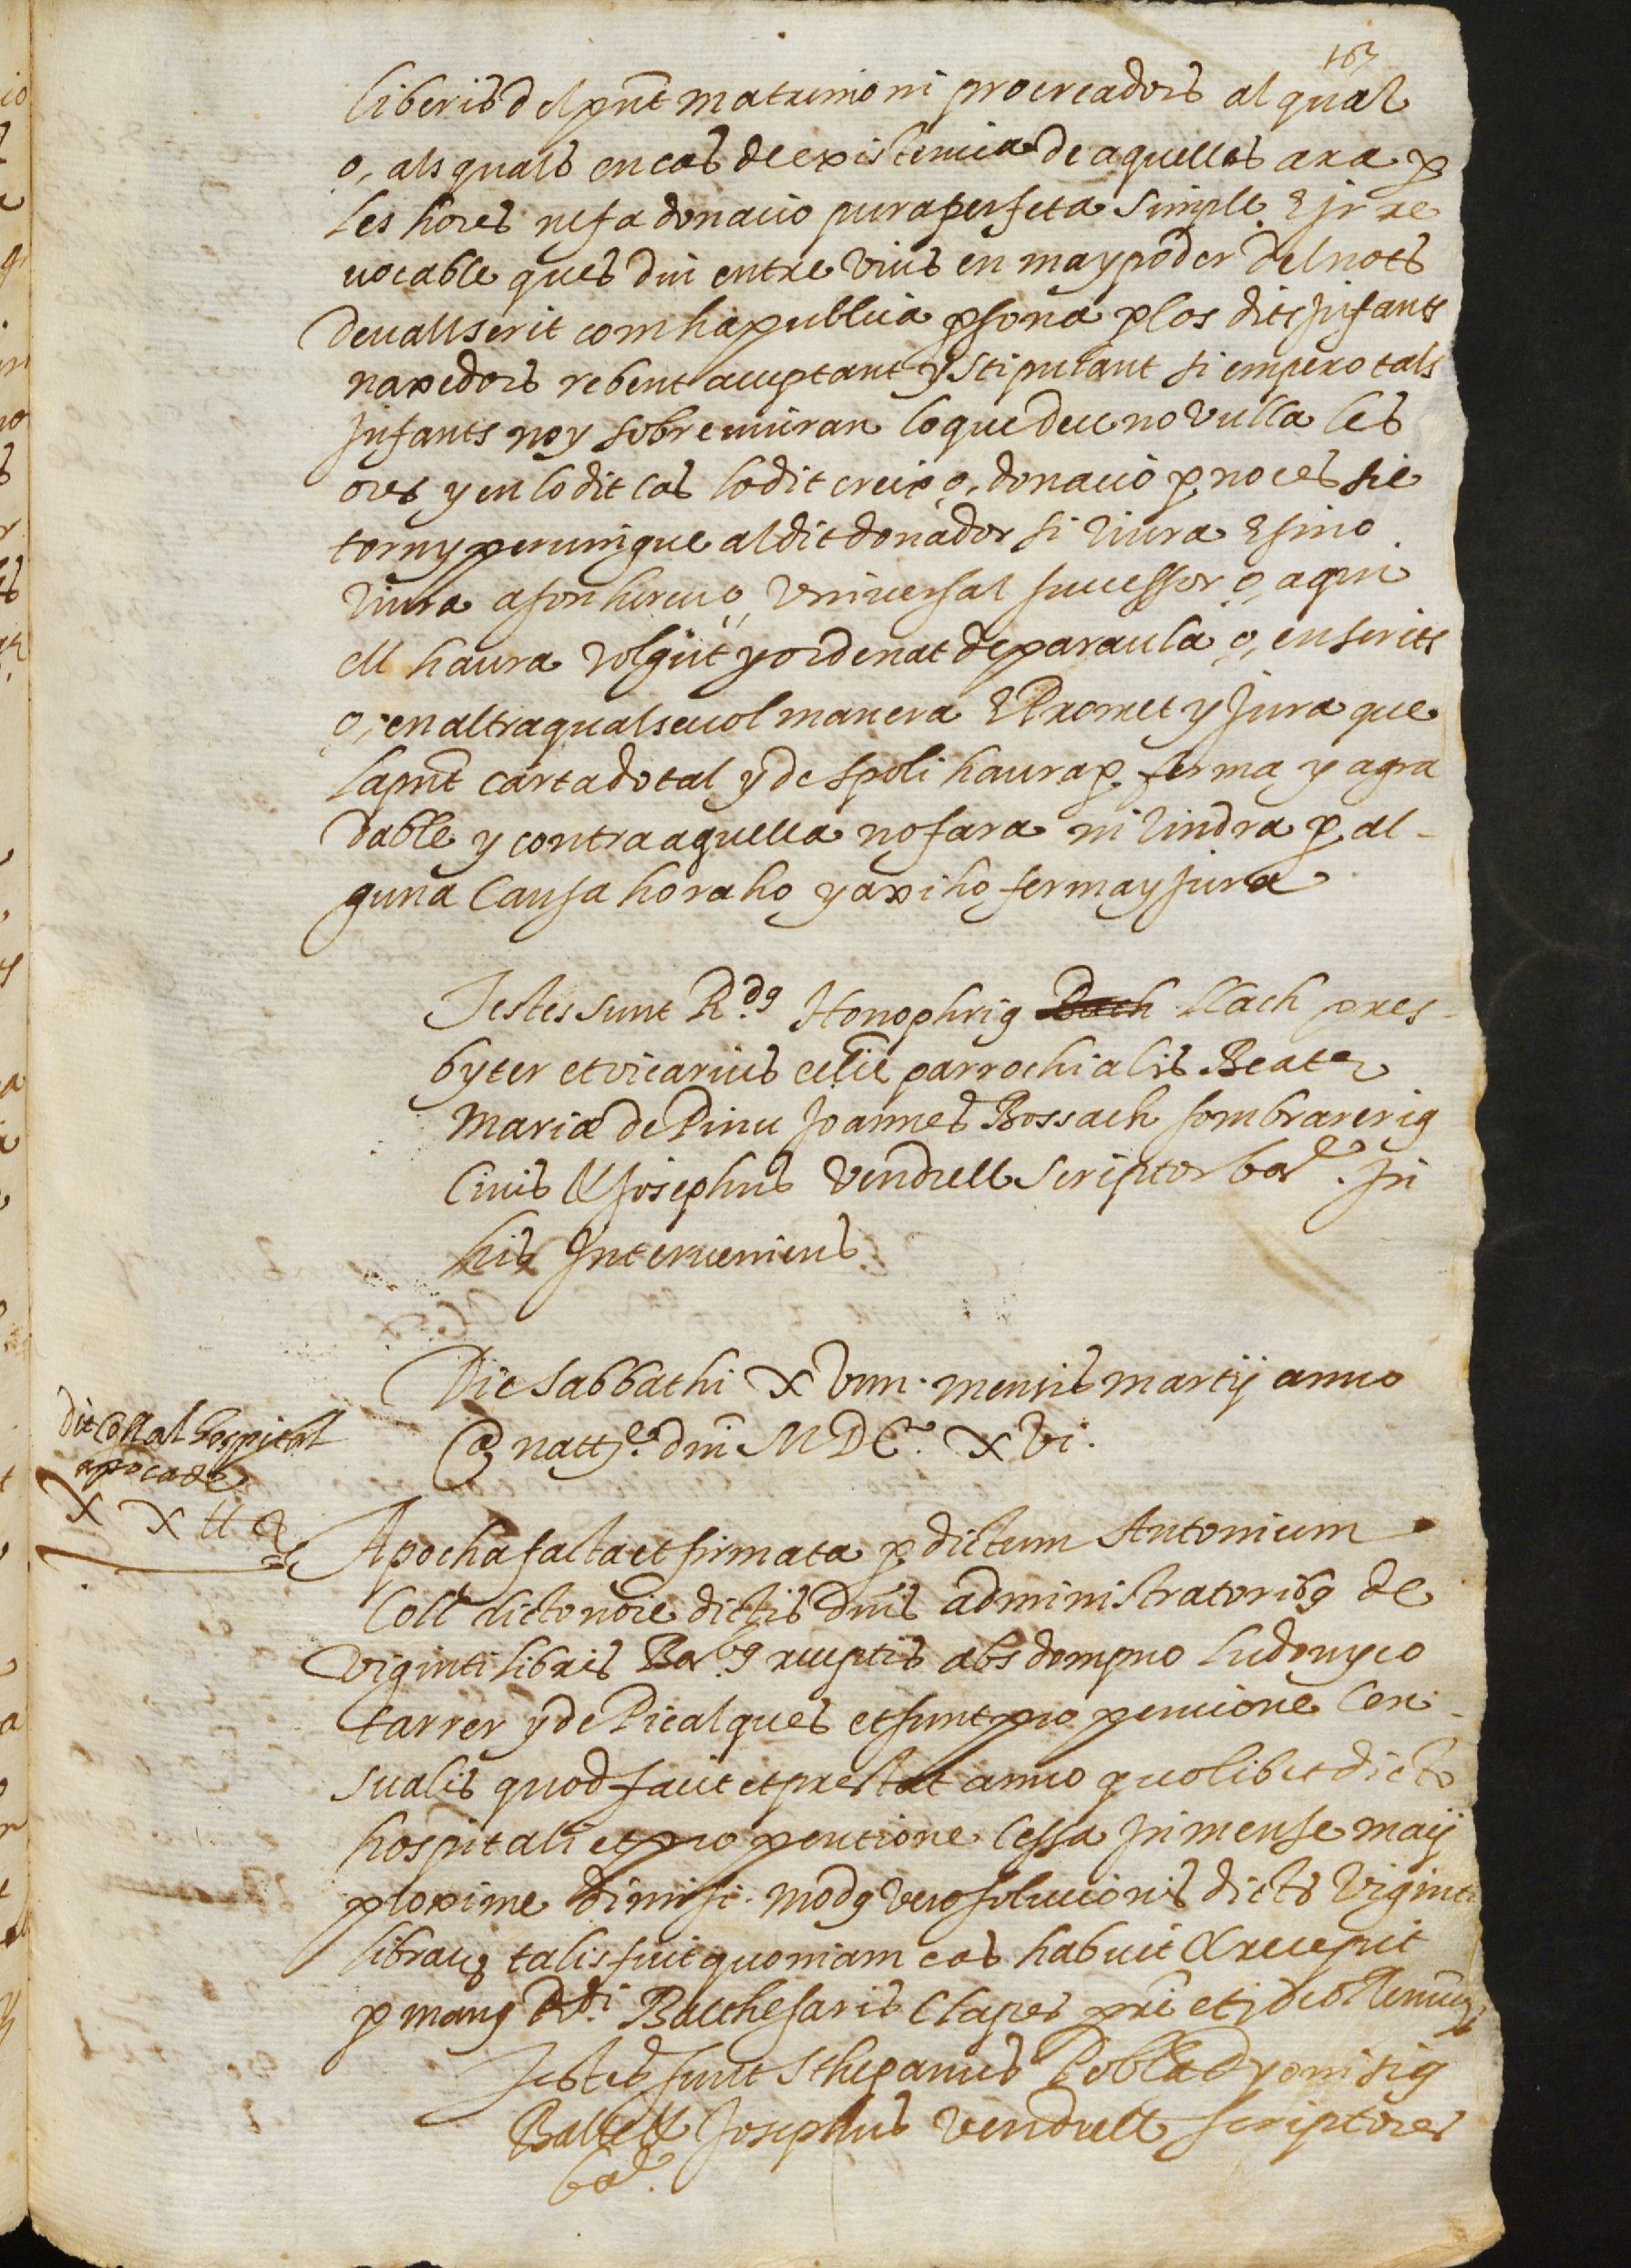 163
liberis del pnt matrimoni procreadors al qual
o, als quals en cas de existencia de aquelles ara p
les hores ne fa donacio pura perfeta simple E jrre
uocable ques diu entre vius en ma y poder del nots
deuallscrit com ha publica psona p los dits jnfants
naxedors rebent acceptant y stipulant si empero tals
jnfants noy sobreuiuran lo que deu no vulla les
ores y en lo dit cas lo dit creix o, donacio p noces sie
torn y peruingue al dit donador si viura E si no
viura a son hereu o, vniuersal successor o, a qui
ell haura volgut y ordenat de paraula o, en scrits
o, en altra qualseuol manera E Promet y jura que
la pnt carta dotal y de spoli haura p ferma y agra
dable y contra aquella no fara ni vindra p al-
guna causa ho raho y axi ho ferma y jura
Testes sunt Rdus Honophrius Bach llach pres-
byter et vicarius ecclie parrochialis Beate
Mariæ de Pinu Joannes Bossach sombrarerius
Ciuis & Josephus Vendrell scriptor bar. In
his Interueniens
Die sabbathi X viiii. mensis martij anno
a natte dni M DC. X Vi.
dit Coll al hospital
apoca de
X X ll
Apocha facta et firmata p dictum Antonium
Coll dicto noie dictis dnis administratoribus de
viginti libris Bar. receptis abs dompno ludouyco
tarrer y de Picalques et sunt pro pencione Cen-
sualis quod facit et prestat anno quolibet dicto
hospitali et pro pentione Cessa in mense maij
ploxime dimisi. modus vero solucionis dicts viginti
libraru talis fuit quoniam eas habuit & recepit
p manus Rdi. Balthesaris Clapes pri et ideo Renuns
Testes sunt Sthepanus Pobla dyonisius
Battell Josephus Vendrell scriptores
bar.